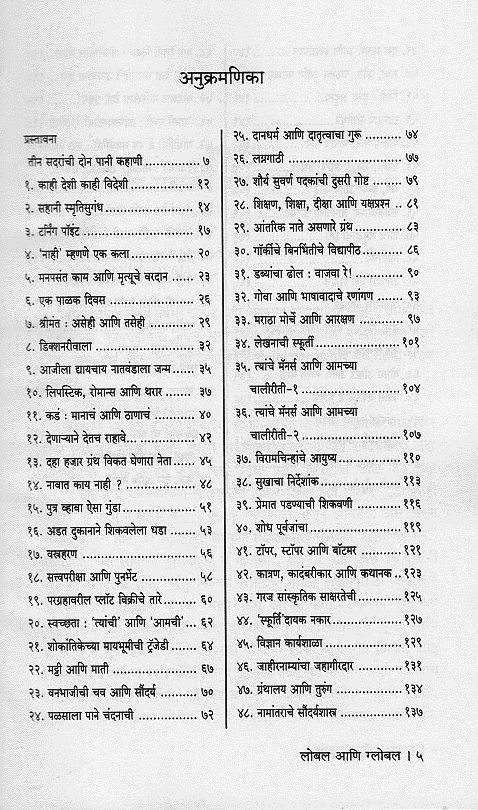 अनुक्रमणिका
प्रस्तावना
तीन सदरांची दोन पानी कहाणी ............. ७
१. काही देशी काही विदेशी ................ १२
२. सहानी स्मृतिसुगंध ...................... १४
३. टर्निंग पॉइंट ............................. १७
४. 'नाही' म्हणणे एक कला ................ २०
५. मनपसंत काम आणि मृत्यूचे वरदान ..... २३
६. एक पाळक दिवस ....................... २६
७. श्रीमंत : असेही आणि तसेही ........... २९
८. डिक्शनरीवाला ........................... ३२
९. आजीला द्यायचाय नातवंडाला जन्म .... ३५
१०. लिपस्टिक, रोमान्स आणि थरार ....... ३७
११. कडं : मानाचं आणि ठाणाचं .......... ४०
१२. देणाऱ्याने देतच राहावे... ............. ४२
१३. दहा हजार ग्रंथ विकत घेणारा नेता .... ४५
१४. नावात काय नाही ? .................... ४८
१५. पुत्र व्हावा ऐसा गुंडा .................... ५१
१६. अडत दुकानाने शिकवलेला धडा ...... ५३
१७. वस्त्रहरण ................................ ५६
१८. सत्त्वपरीक्षा आणि पुनर्भेट ............. ५८
१९. परग्रहावरील प्लॉट विक्रीचे तारे ........ ६०
२०. स्वच्छता : 'त्यांची' आणि 'आमची' ... ६२
२१. शोकांतिकेच्या मायभूमीची ट्रॅजेडी ..... ६४
२२. मट्टी आणि माती ....................... ६७
२३. वनभाजीची चव आणि सौंदर्य ......... ७०
२४. पळसाला पाने चंदनाची ................ ७२
२५. दानधर्म आणि दातृत्वाचा गुरू .......... ७४
२६. लग्नगाठी ................................ ७७
२७. शौर्य सुवर्ण पदकांची दुसरी गोष्ट ....... ७९
२८. शिक्षण, शिक्षा, दीक्षा आणि यक्षप्रश्न .. ८१
२९. आंतरिक नाते असणारे ग्रंथ ............ ८३
३०. गॉर्कीचे बिनभिंतीचे विद्यापीठ .......... ८६
३१. डब्यांचा ढोल : वाजवा रे! ............. ९०
३२. गोवा आणि भाषावादाचे रणांगण ....... ९३
३३. मराठा मोर्चे आणि आरक्षण ............ ९७
३४. लेखनाची स्फूर्ती ..................... १०१
३५. त्यांचे मॅनर्स आणि आमच्या
चालीरीती-१ .......................... १०४
३६. त्यांचे मॅनर्स आणि आमच्या
चालीरीती-२ .......................... १०७
३७. विरामचिन्हांचे आयुष्य ............... ११०
३८. सुखाचा निर्देशांक .................... ११३
३९. प्रेमात पडण्याची शिकवणी ........... ११६
४०. शोध पूर्वजांचा ........................ ११९
४१. टॉपर, स्टॉपर आणि बॉटमर .......... १२१
४२. कात्रण, कादंबरीकार आणि कथानक .. १२३
४३. गरज सांस्कृतिक साक्षरतेची .......... १२५
४४. 'स्फूर्ति'दायक नकार .................. १२७
४५. विज्ञान कार्यशाळा ..................... १२९
४६. जाहीरनाम्यांचा जहागीरदार ............ १३१
४७. ग्रंथालय आणि तुरुंग .................. १३४
४८. नामांतराचे सौंदर्यशास्त्र ................ १३७
लोबल आणि ग्लोबल । ५